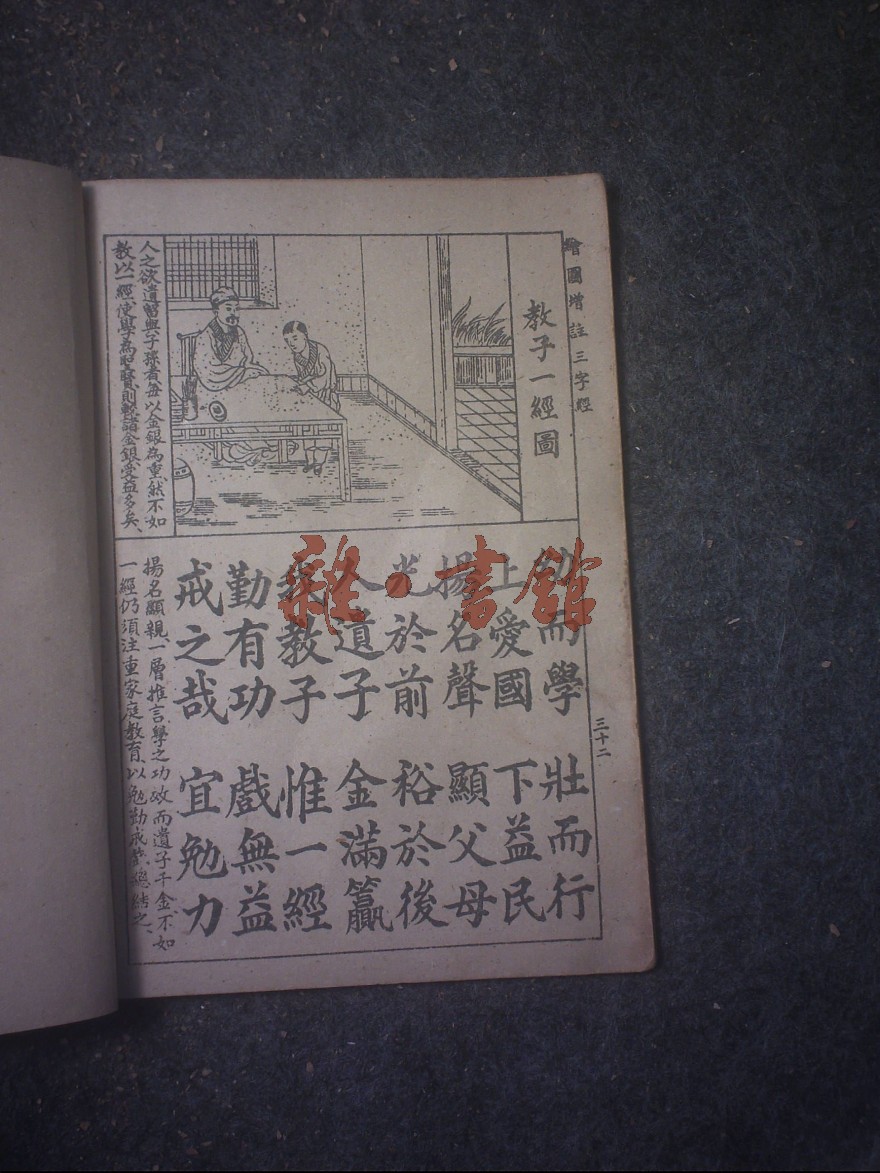 繪圖增註三字經
三十二
教子一經圖
人之欲遺留與子孫者每以金銀為重然不如
教以一經使學為聖賢則較諸金銀受益多矣、
幼而學 壯而行
上愛國 下益民
揚名聲 顯父母
光於前 裕於後
人遺子 金滿籯
我教子 惟一經
勤有功 戲無益
戒之哉 宜勉力
揚名顯親一層推言學之功效而遺子千金不如
一經仍須注重家庭教育、以勉勤戒荒總結之、
雜·書館